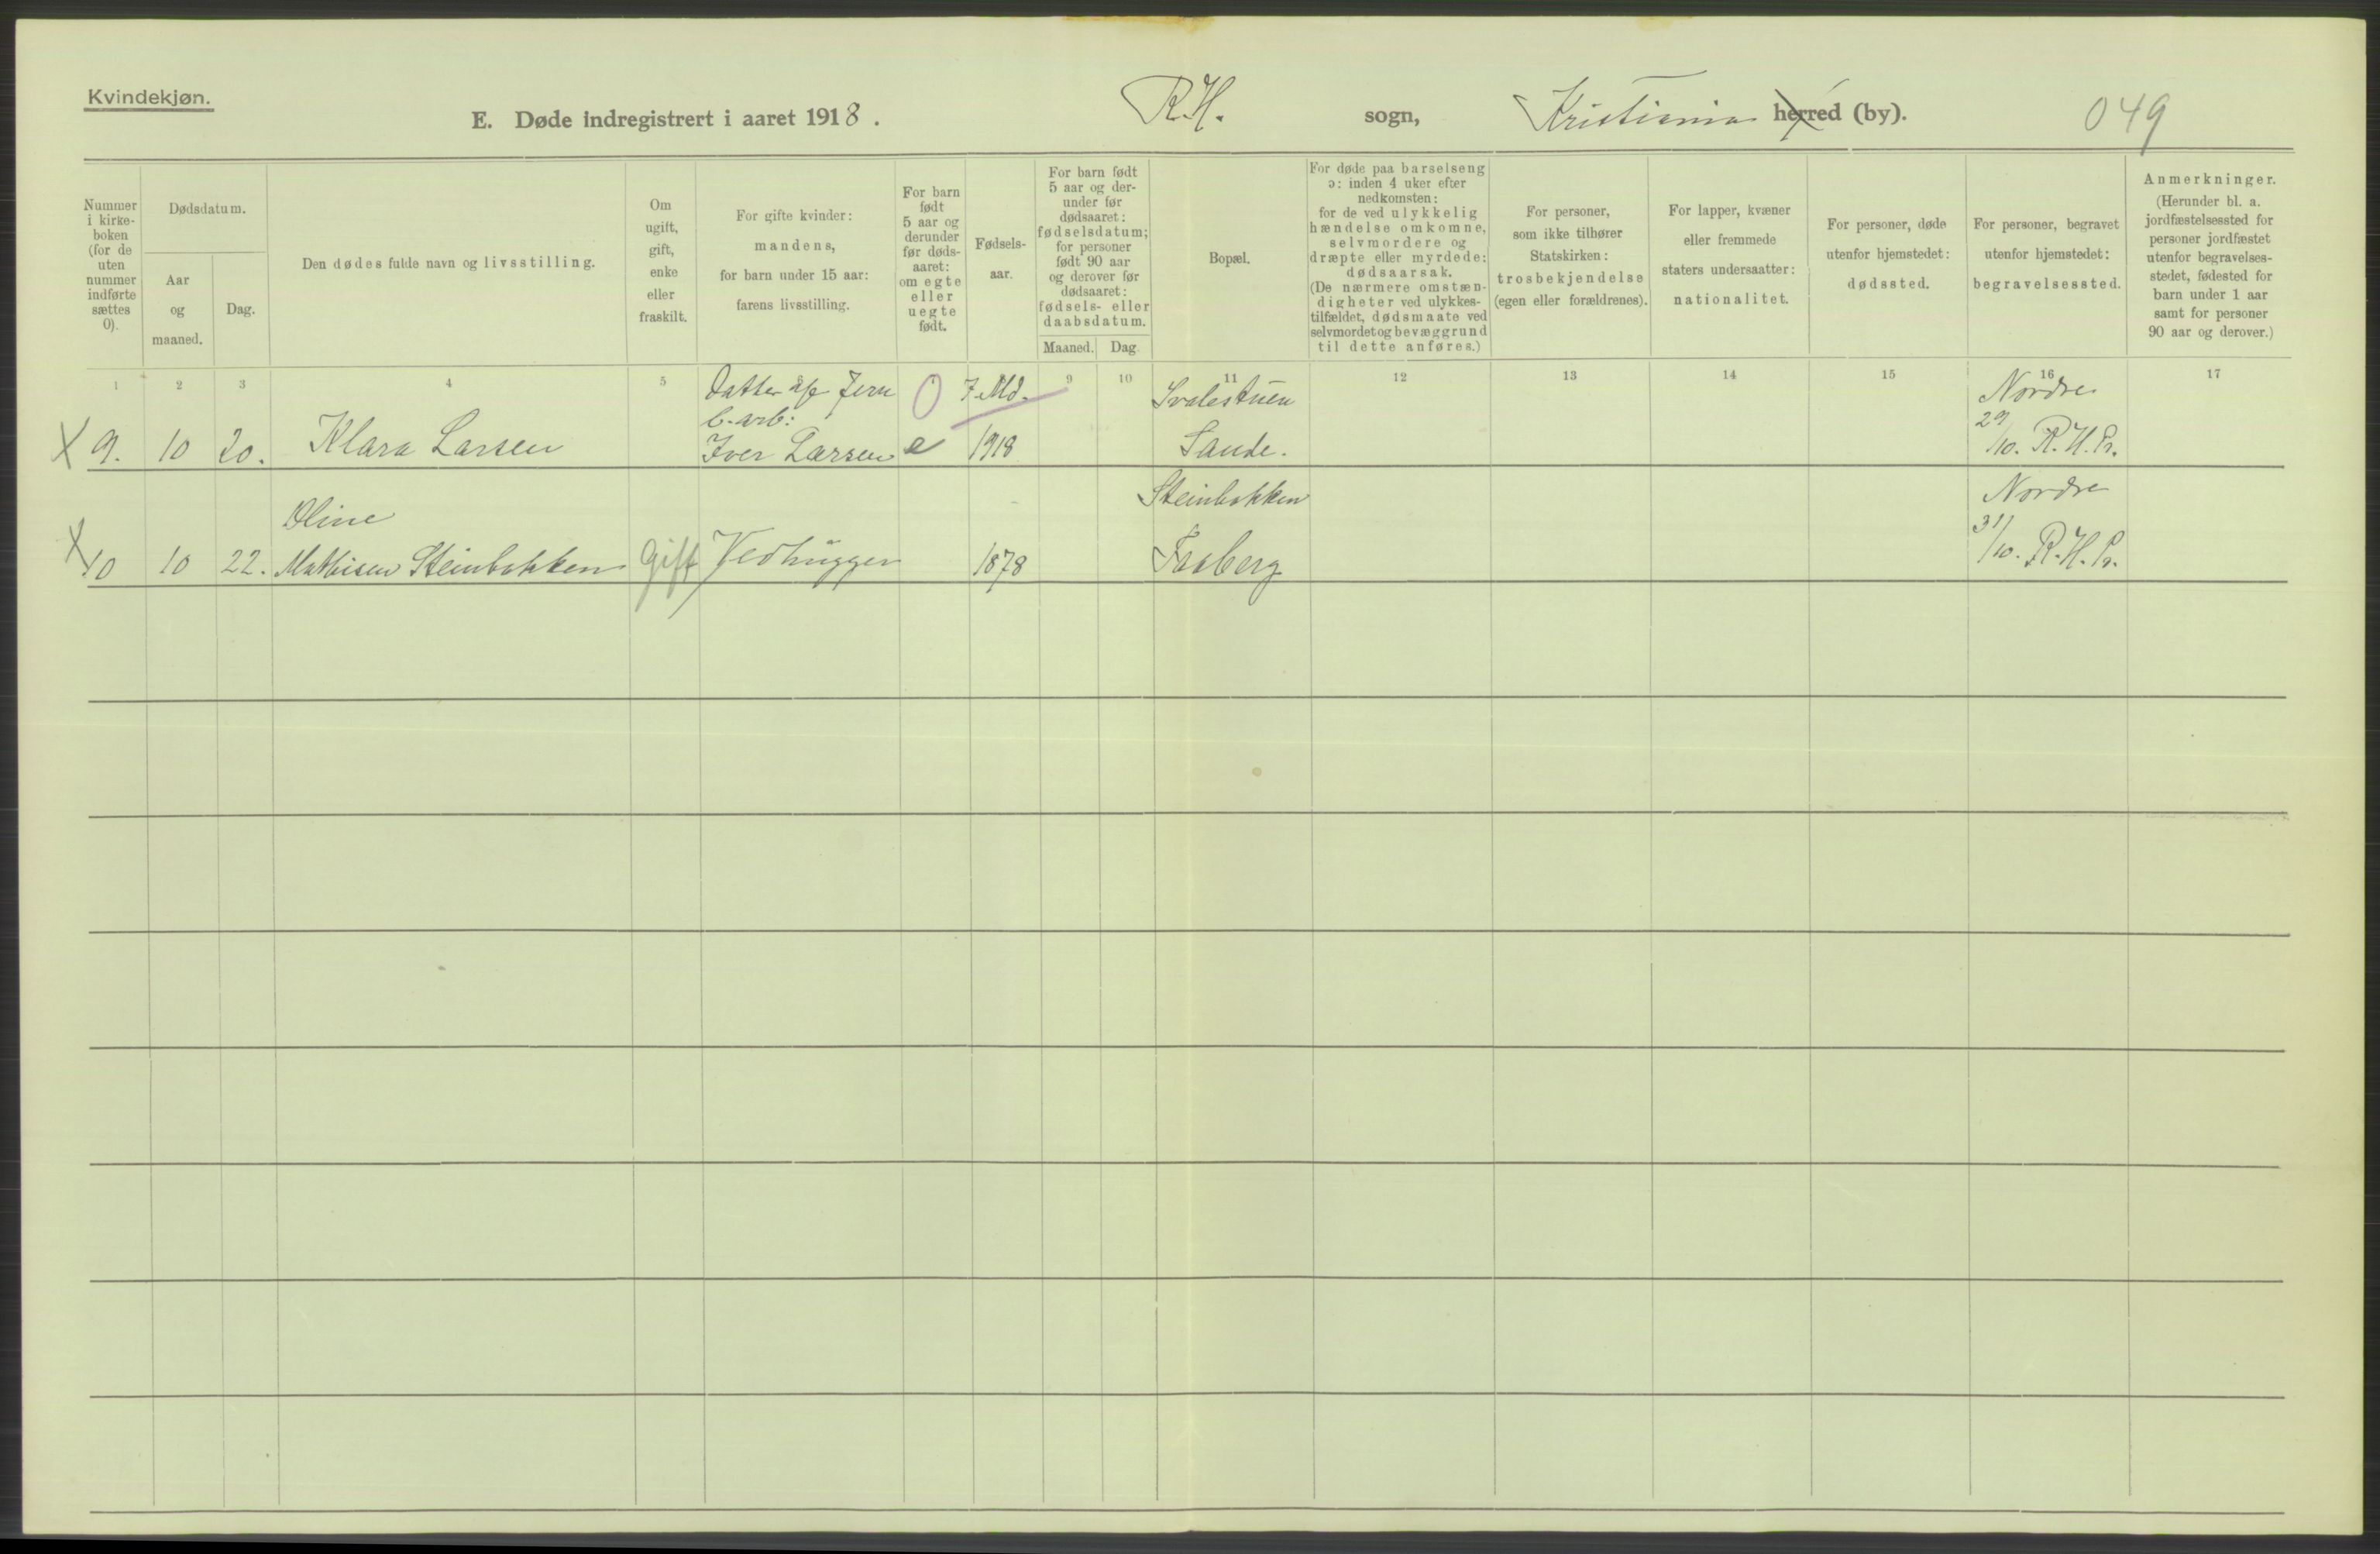 Kvindekjøn.
E. Døde indregistrert i aaret 1918. R.H. sogn, Kristiania herred (by). 049
Nummer i kirke-boken (for de uten nummer indførte sættes 0).
Dødsdatum.
Aar og maaned.
Dag.
Den dødes fulde navn og livsstilling.
Om ugift, gift, enke eller fraskilt.
For gifte kvinder: mandens, for barn under 15 aar: farens livsstilling.
For barn født 5 aar og derunder før døds-aaret: om egte eller uegte født.
Fødsels-aar.
For barn født 5 aar og der-under før dødsaaret: fødselsdatum; for personer født 90 aar og derover før dødsaaret: fødsels- eller daabsdatum.
Maaned. Dag
Bopæl.
For døde paa barselseng ɔ: inden 4 uker efter nedkomsten: for de ved ulykkelig hændelse omkomne, selvmordere og dræpte eller myrdede: dødsaarsak. (De nærmere omstæn-digheter ved ulykkes-tilfældet, dødsmaate ved selvmordet og bevæggrund til dette anføres.)
For personer, som ikke tilhører Statskirken: trosbekjendelse (egen eller forældrenes).
For lapper, kvæner eller fremmede staters undersaatter: nationalitet.
For personer, døde utenfor hjemstedet: dødssted.
For personer, begravet utenfor hjemstedet: begravelsessted.
Anmerkninger. (Herunder bl. a. jordfæstelsessted for personer jordfæstet utenfor begravelses-stedet, fødested for barn under 1 aar samt for personer 90 aar og derover.)
1 2 3 4 5 9 10 11 12 13 14 15 16 17
Datter af Jern 7 Md. Nordre
b. arb:
X 9. 10 20. Klara Larsen Iver Larsen e 1918 Sande. 29/10. R.H.Pr.
Oline Steinbakken Nordre
X 10 10 22. Mathisen Steinbakken Gift Vedhugger 1878 Faaberg 31/10. R.H.Pr.